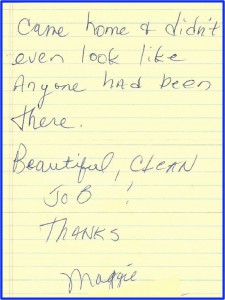 Came home & didn't
even look like
Anyone had been
there.
Beautiful, CLEAN
JOB !
THANKS
Maggie